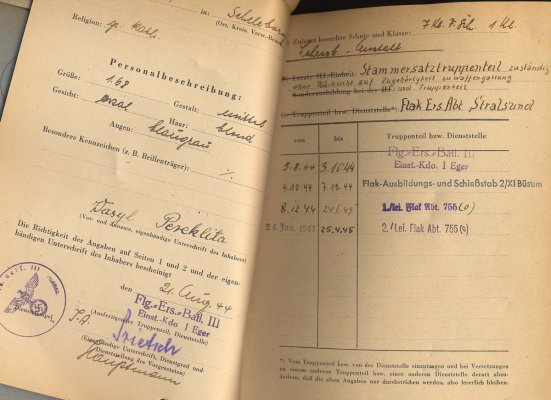 in: Scheleborn
(Ort, Kreis, Verw.-Bezirk)
Religion: gr. kath.
Personalbeschreibung:
Größe: 1.68 Gestalt: mittel
Gesicht: oval Haar: blond
Augen: blaugrau
Besondere Kennzeichen (z. B. Brillenträger): ./.
Wasyl Pereklita
(Vor- und Zuname, eigenhändige Unterschrift des Inhabers)
Die Richtigkeit der Angaben auf Seiten 1 und 2 und der eigen-
händigen Unterschrift des Inhabers bescheinigt
den 21. Aug. 44
Flg.-Ers.-Batl. III
Einst.-Kdo I Eger
(Ausfertigender Truppenteil, Dienststelle)
I.A.
(Eigenhändige Unterschrift, Dienstgrad und
Dienststellung des Vorgesetzten)
Hauptmann
Zuletzt besuchte Schule und Klasse: 7 Kl.
Stammersatztruppenteil zuständig
ohne Rücksicht auf Zugehörigkeit zu Waffengattung
und Truppenteil
Truppenteil bzw. Dienststelle*: Flak Ers. Abt Stralsund
von bis Truppenteil bzw. Dienststelle
5.8.44 3.10.44 Flg.-Ers.-Batl. III
Einst.-Kdo. I Eger
4.10.44 7.12.44 Flak-Ausbildungs- und Schießstab 2/XI Büsum
8.12.44 1./lei. Flak Abt. 755 (o)
24. Jan. 1945 25.4.45 2./lei. Flak Abt. 755 (o)
*) Vom Truppenteil bzw. von der Dienststelle einzutragen und bei Versetzungen
zu einem anderen Truppenteil bzw. einer anderen Dienststelle derart abzu-
ändern, daß die alten Angaben nur durchstrichen werden, also leserlich bleiben.